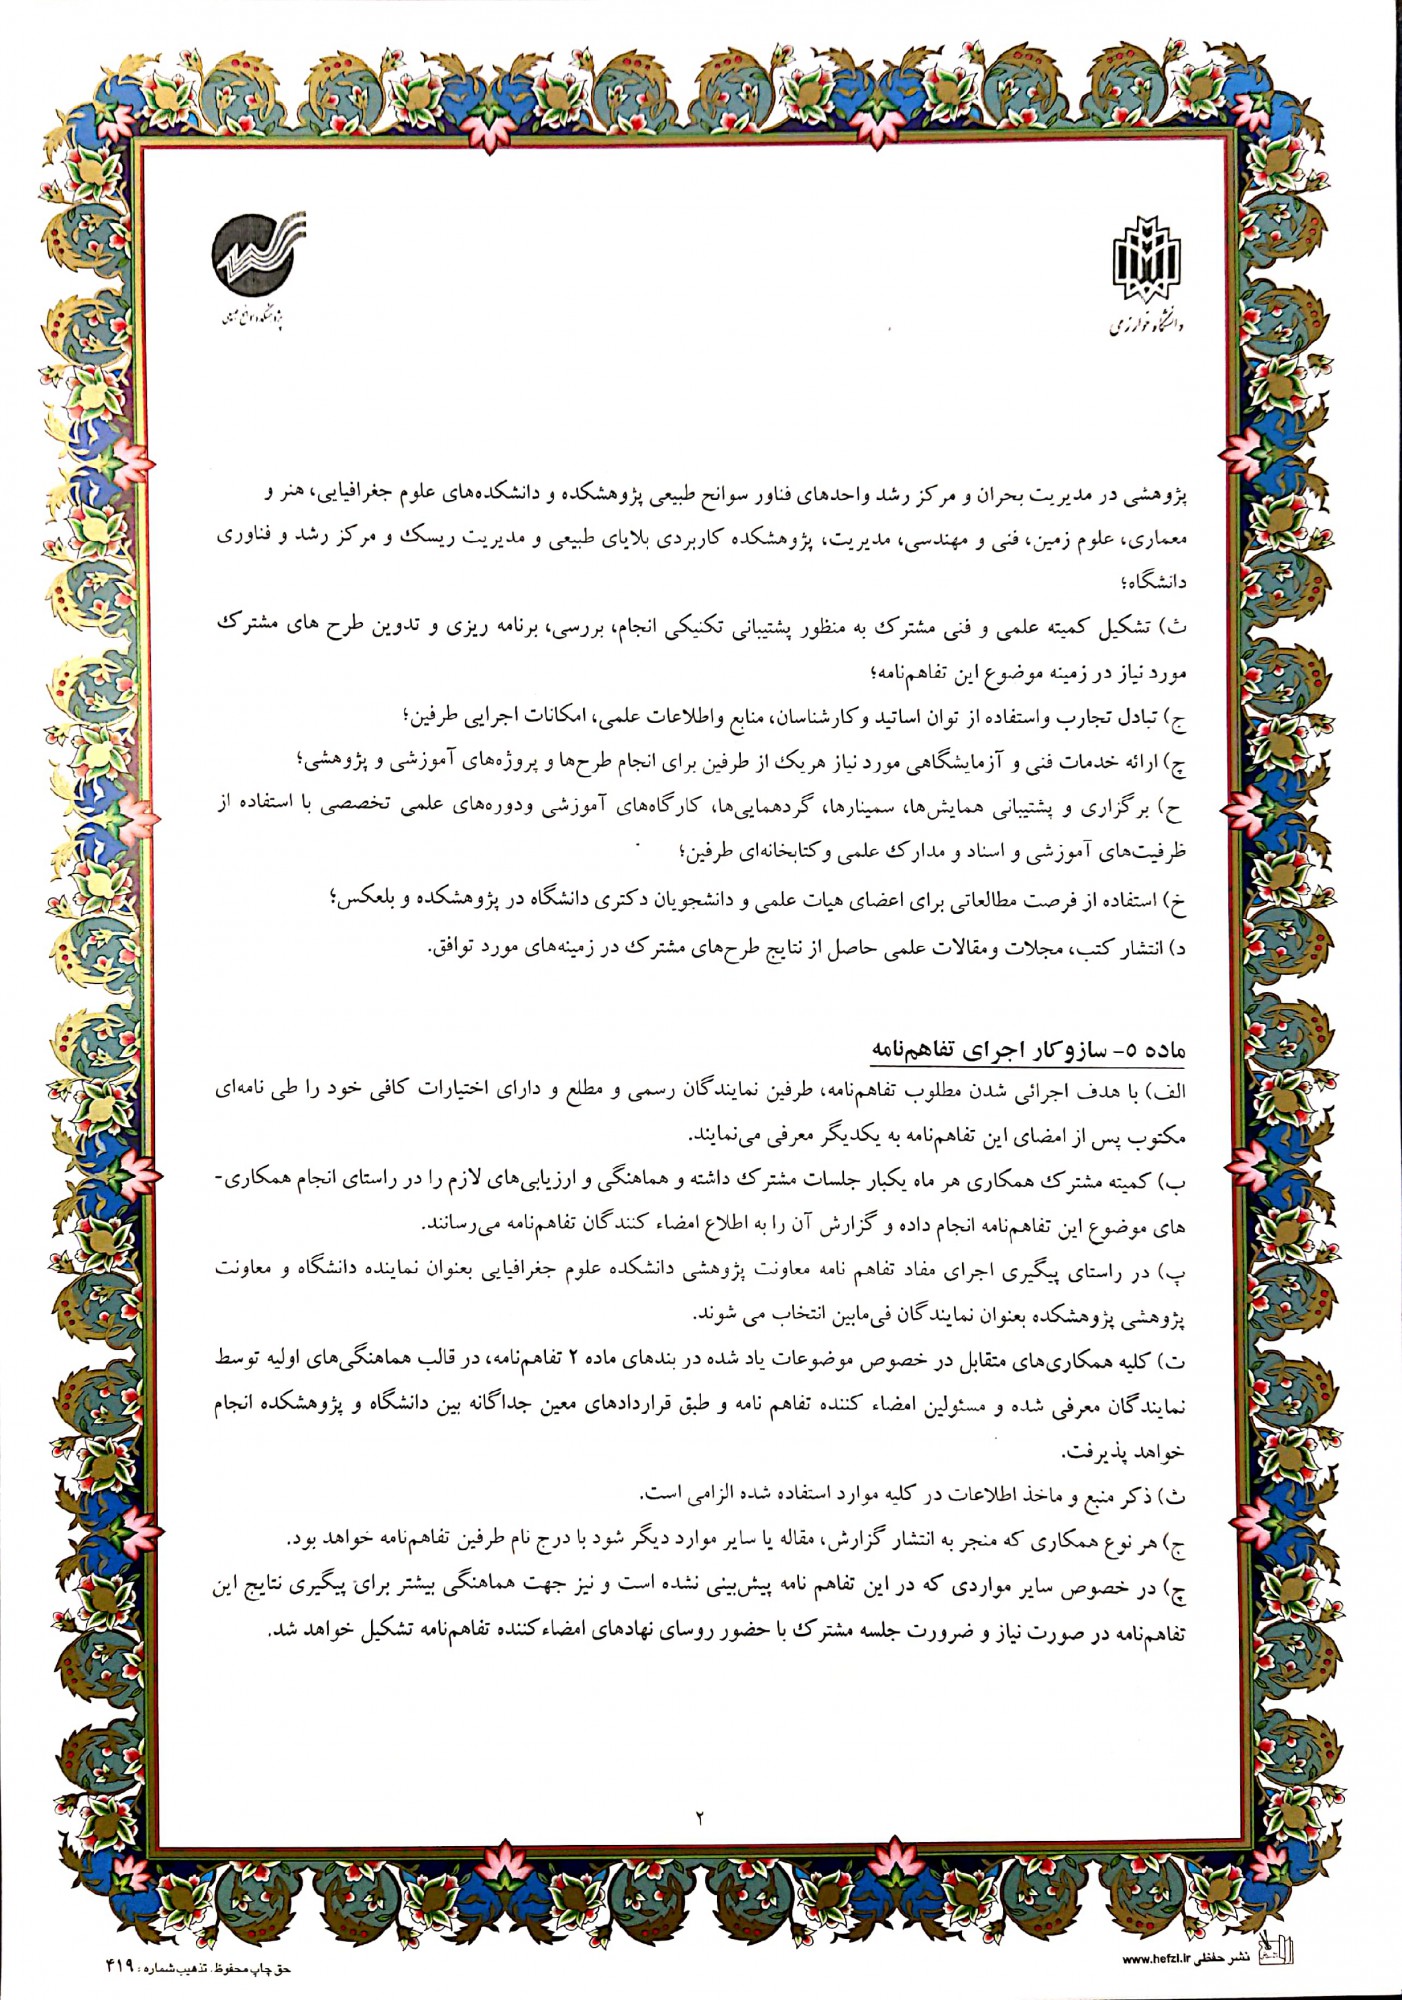 دانشگاه خوارزمی
پژوهشکده سوانح طبیعی
پژوهشی در مدیریت بحران و مرکز رشد واحدهای فناور سوانح طبیعی پژوهشکده و دانشکده‌های علوم جغرافیایی، هنر و
معماری، علوم زمین، فنی و مهندسی، مدیریت، پژوهشکده کاربردی بلایای طبیعی و مدیریت ریسک و مرکز رشد و فناوری
دانشگاه؛
ث) تشکیل کمیته علمی و فنی مشترک به منظور پشتیبانی تکنیکی انجام، بررسی، برنامه ریزی و تدوین طرح های مشترک
مورد نیاز در زمینه موضوع این تفاهم‌نامه؛
ج) تبادل تجارب واستفاده از توان اساتید وکارشناسان، منابع واطلاعات علمی، امکانات اجرایی طرفین؛
چ) ارائه خدمات فنی و آزمایشگاهی مورد نیاز هریک از طرفین برای انجام طرح‌ها و پروژه‌های آموزشی و پژوهشی؛
ح) برگزاری و پشتیبانی همایش‌ها، سمینارها، گردهمایی‌ها، کارگاه‌های آموزشی ودوره‌های علمی تخصصی با استفاده از
ظرفیت‌های آموزشی و اسناد و مدارک علمی وکتابخانه‌ای طرفین؛
خ) استفاده از فرصت مطالعاتی برای اعضای هیات علمی و دانشجویان دکتری دانشگاه در پژوهشکده و بلعکس؛
د) انتشار کتب، مجلات ومقالات علمی حاصل از نتایج طرح‌های مشترک در زمینه‌های مورد توافق.
ماده ۵- سازوکار اجرای تفاهم‌نامه
الف) با هدف اجرائی شدن مطلوب تفاهم‌نامه، طرفین نمایندگان رسمی و مطلع و دارای اختیارات کافی خود را طی نامه‌ای
مکتوب پس از امضای این تفاهم‌نامه به یکدیگر معرفی می‌نمایند.
ب) کمیته مشترک همکاری هر ماه یکبار جلسات مشترک داشته و هماهنگی و ارزیابی‌های لازم را در راستای انجام همکاری-
های موضوع این تفاهم‌نامه انجام داده و گزارش آن را به اطلاع امضاء کنندگان تفاهم‌نامه می‌رسانند.
پ) در راستای پیگیری اجرای مفاد تفاهم نامه معاونت پژوهشی دانشکده علوم جغرافیایی بعنوان نماینده دانشگاه و معاونت
پژوهشی پژوهشکده بعنوان نمایندگان فی‌مابین انتخاب می شوند.
ت) کلیه همکاری‌های متقابل در خصوص موضوعات یاد شده در بندهای ماده ۲ تفاهم‌نامه، در قالب هماهنگی‌های اولیه توسط
نمایندگان معرفی شده و مسئولین امضاء کننده تفاهم نامه و طبق قراردادهای معین جداگانه بین دانشگاه و پژوهشکده انجام
خواهد پذیرفت.
ث) ذکر منبع و ماخذ اطلاعات در کلیه موارد استفاده شده الزامی است.
ج) هر نوع همکاری که منجر به انتشار گزارش، مقاله یا سایر موارد دیگر شود با درج نام طرفین تفاهم‌نامه خواهد بود.
چ) در خصوص سایر مواردی که در این تفاهم نامه پیش‌بینی نشده است و نیز جهت هماهنگی بیشتر برای پیگیری نتایج این
تفاهم‌نامه در صورت نیاز و ضرورت جلسه مشترک با حضور روسای نهادهای امضاءکننده تفاهم‌نامه تشکیل خواهد شد.
۲
نشر حفظی www.hefzi.ir
حق چاپ محفوظ. تذهیب شماره: ۴۱۹